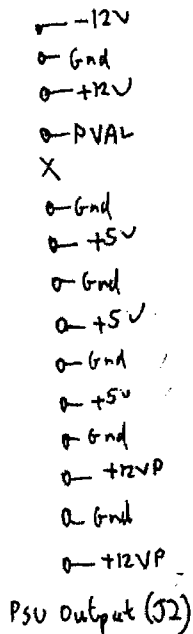 -12V
Gnd
+12V
PVAL
X
Gnd
+5V
Gnd
+5V
Gnd
+5V
Gnd
+12VP
Gnd
+12VP
PSU Output (J2)